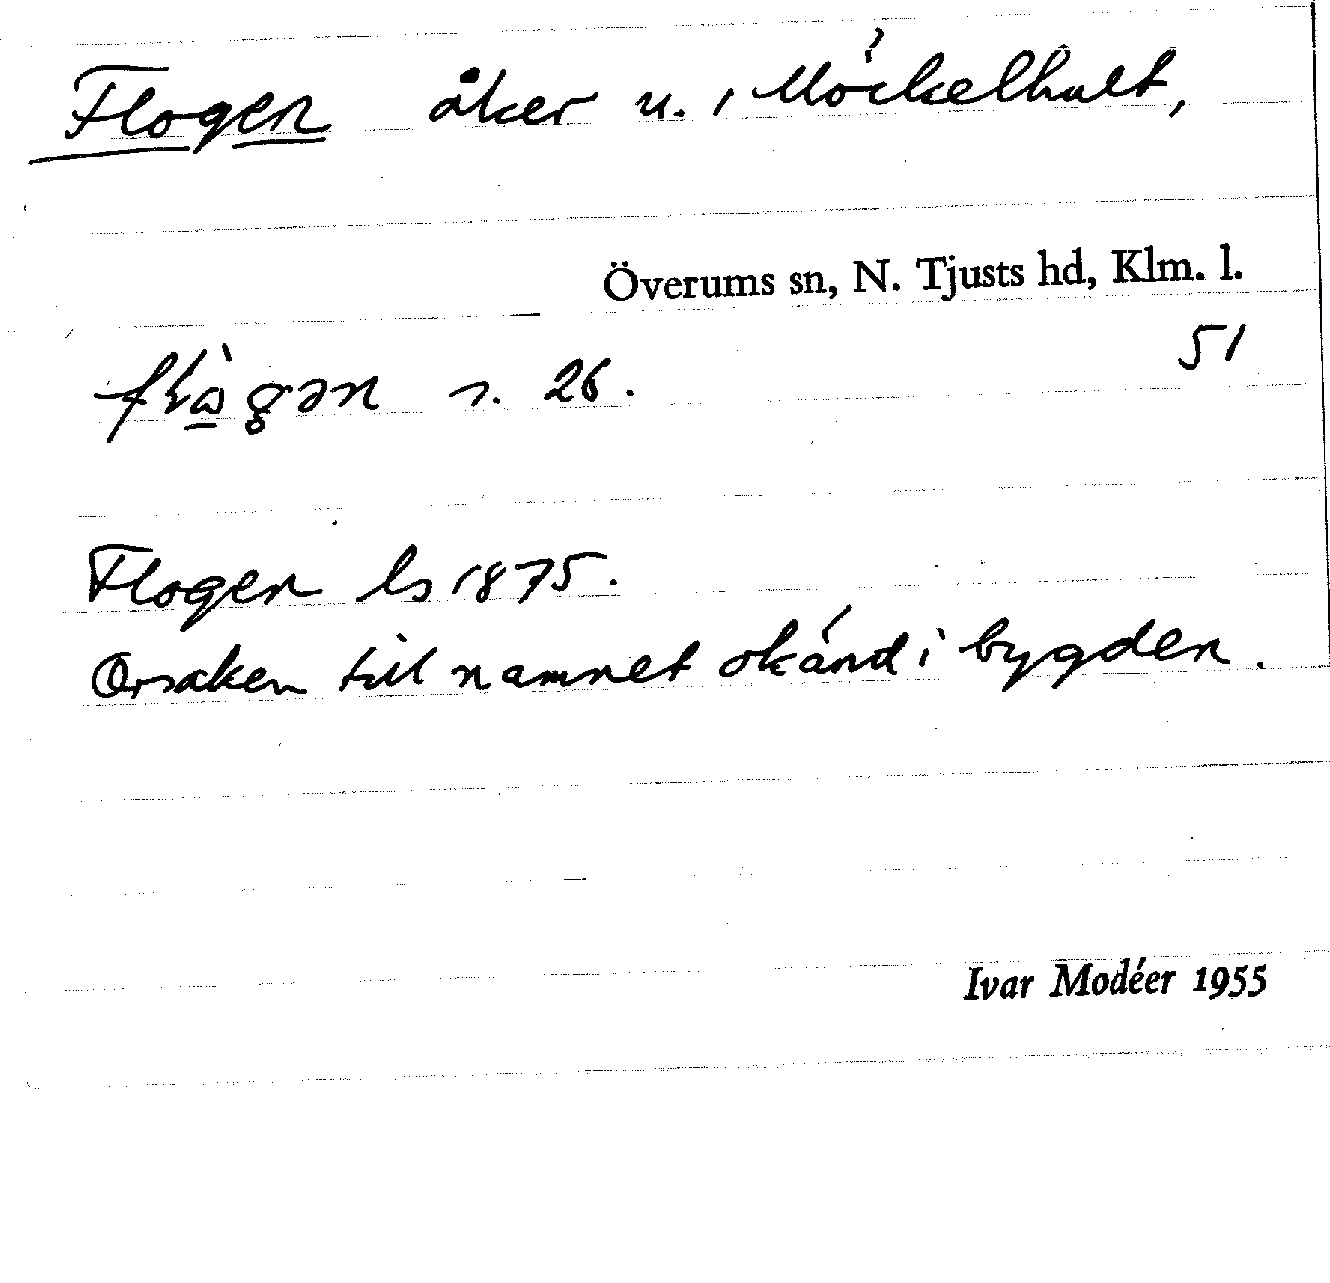 Flogen åker u. i Möckelhult,
Överums sn, N. Tjusts hd, Klm. l.
51
s. 26.
Flogen ls 1875.
Orsaken till namnet okänd i bygden.
Ivar Modéer 1955